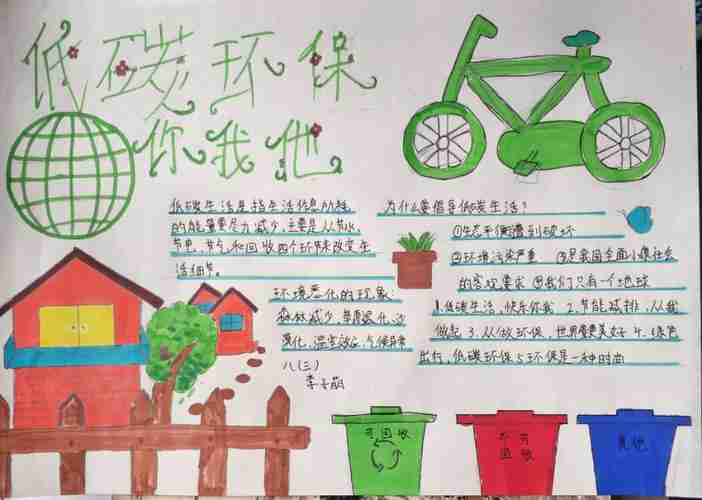 低碳环保
你我他
低碳生活是指生活作息时所耗
的能量要尽力减少,主要是从节水、
节电、节气和回收四个环节来改变生
活细节。
为什么要倡导低碳生活?
①生态平衡遭到破坏
②环境污染严重 ③是我国全面小康社会
的实现要求 ④我们只有一个地球
环境恶化的现象:
森林减少、草原退化、沙
漠化、温室效应、气候异常
八(三)
1.低碳生活,快乐你我 2.节能减排,从我
做起 3.从做环保,世界会更美好 4.绿色
出行,低碳环保 5.环保是一种时尚
可回收
不可
回收
其他